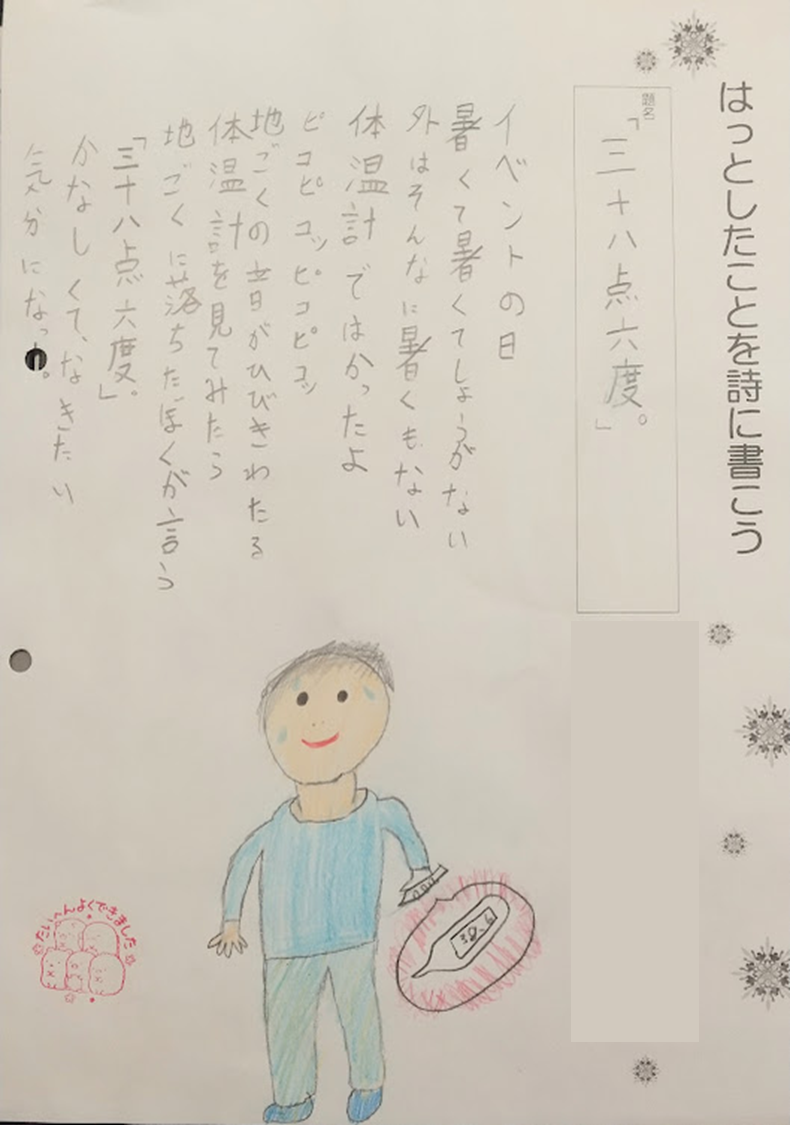 はっとしたことを詩に書こう
題名
「三十八点六度。」
イベントの日
暑くて暑くてしょうがない
外はそんなに暑くもない
体温計ではかったよ
ピコピコッピコピコッ
地ごくの音がひびきわたる
体温計を見てみたら
地ごくに落ちたぼくが言う
「三十八点六度。」
かなしくて、なきたい
気分になった。
38.6
たいへんよくできました